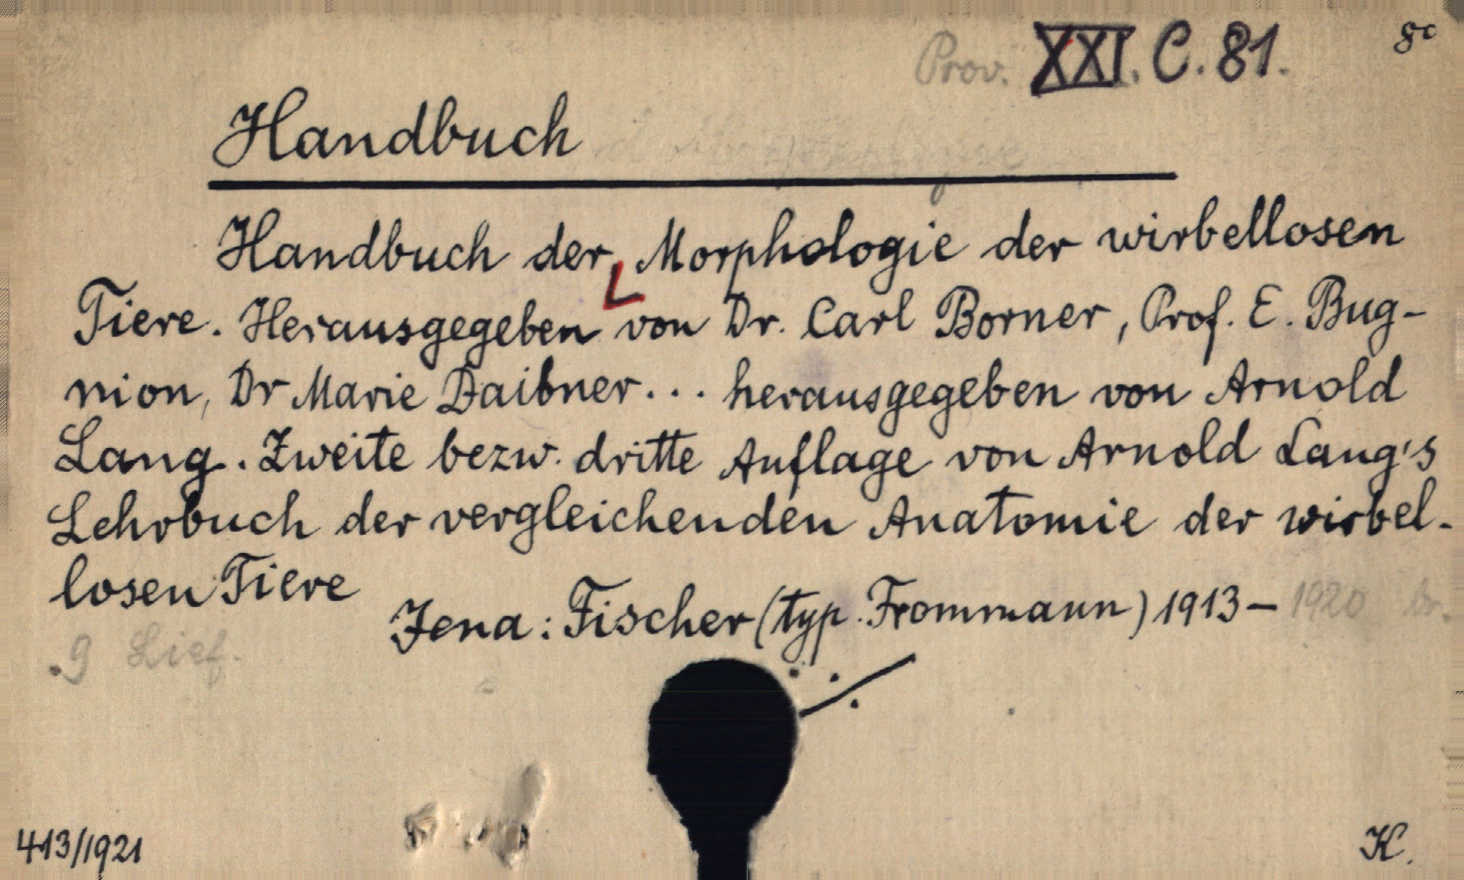 Prov. XXI. C. 81. 8°
Handbuch d. Morphologie
Handbuch der Morphologie der wirbellosen
Tiere. Herausgegeben von Dr. Carl Borner, Prof. E. Bug-
nion, Dr Marie Daibner... herausgegeben von Arnold
Lang. Zweite bezw. dritte Auflage von Arnold Lang's
Lehrbuch der vergleichenden Anatomie der wirbel-
losen Tiere
Jena: Fischer (typ. Frommann) 1913- 1920 br.
9 Lief.
413/1921 K.